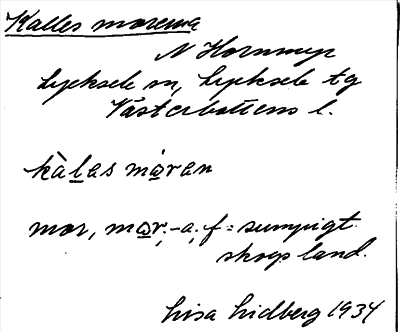 Kalles morerna
N Hornmyr
Lycksele sn, Lycksele tg
Västerbottens l.
kàlas mòran
mor, mor, -a, f = sumpigt
skogsland.
Lisa Lidberg 1934